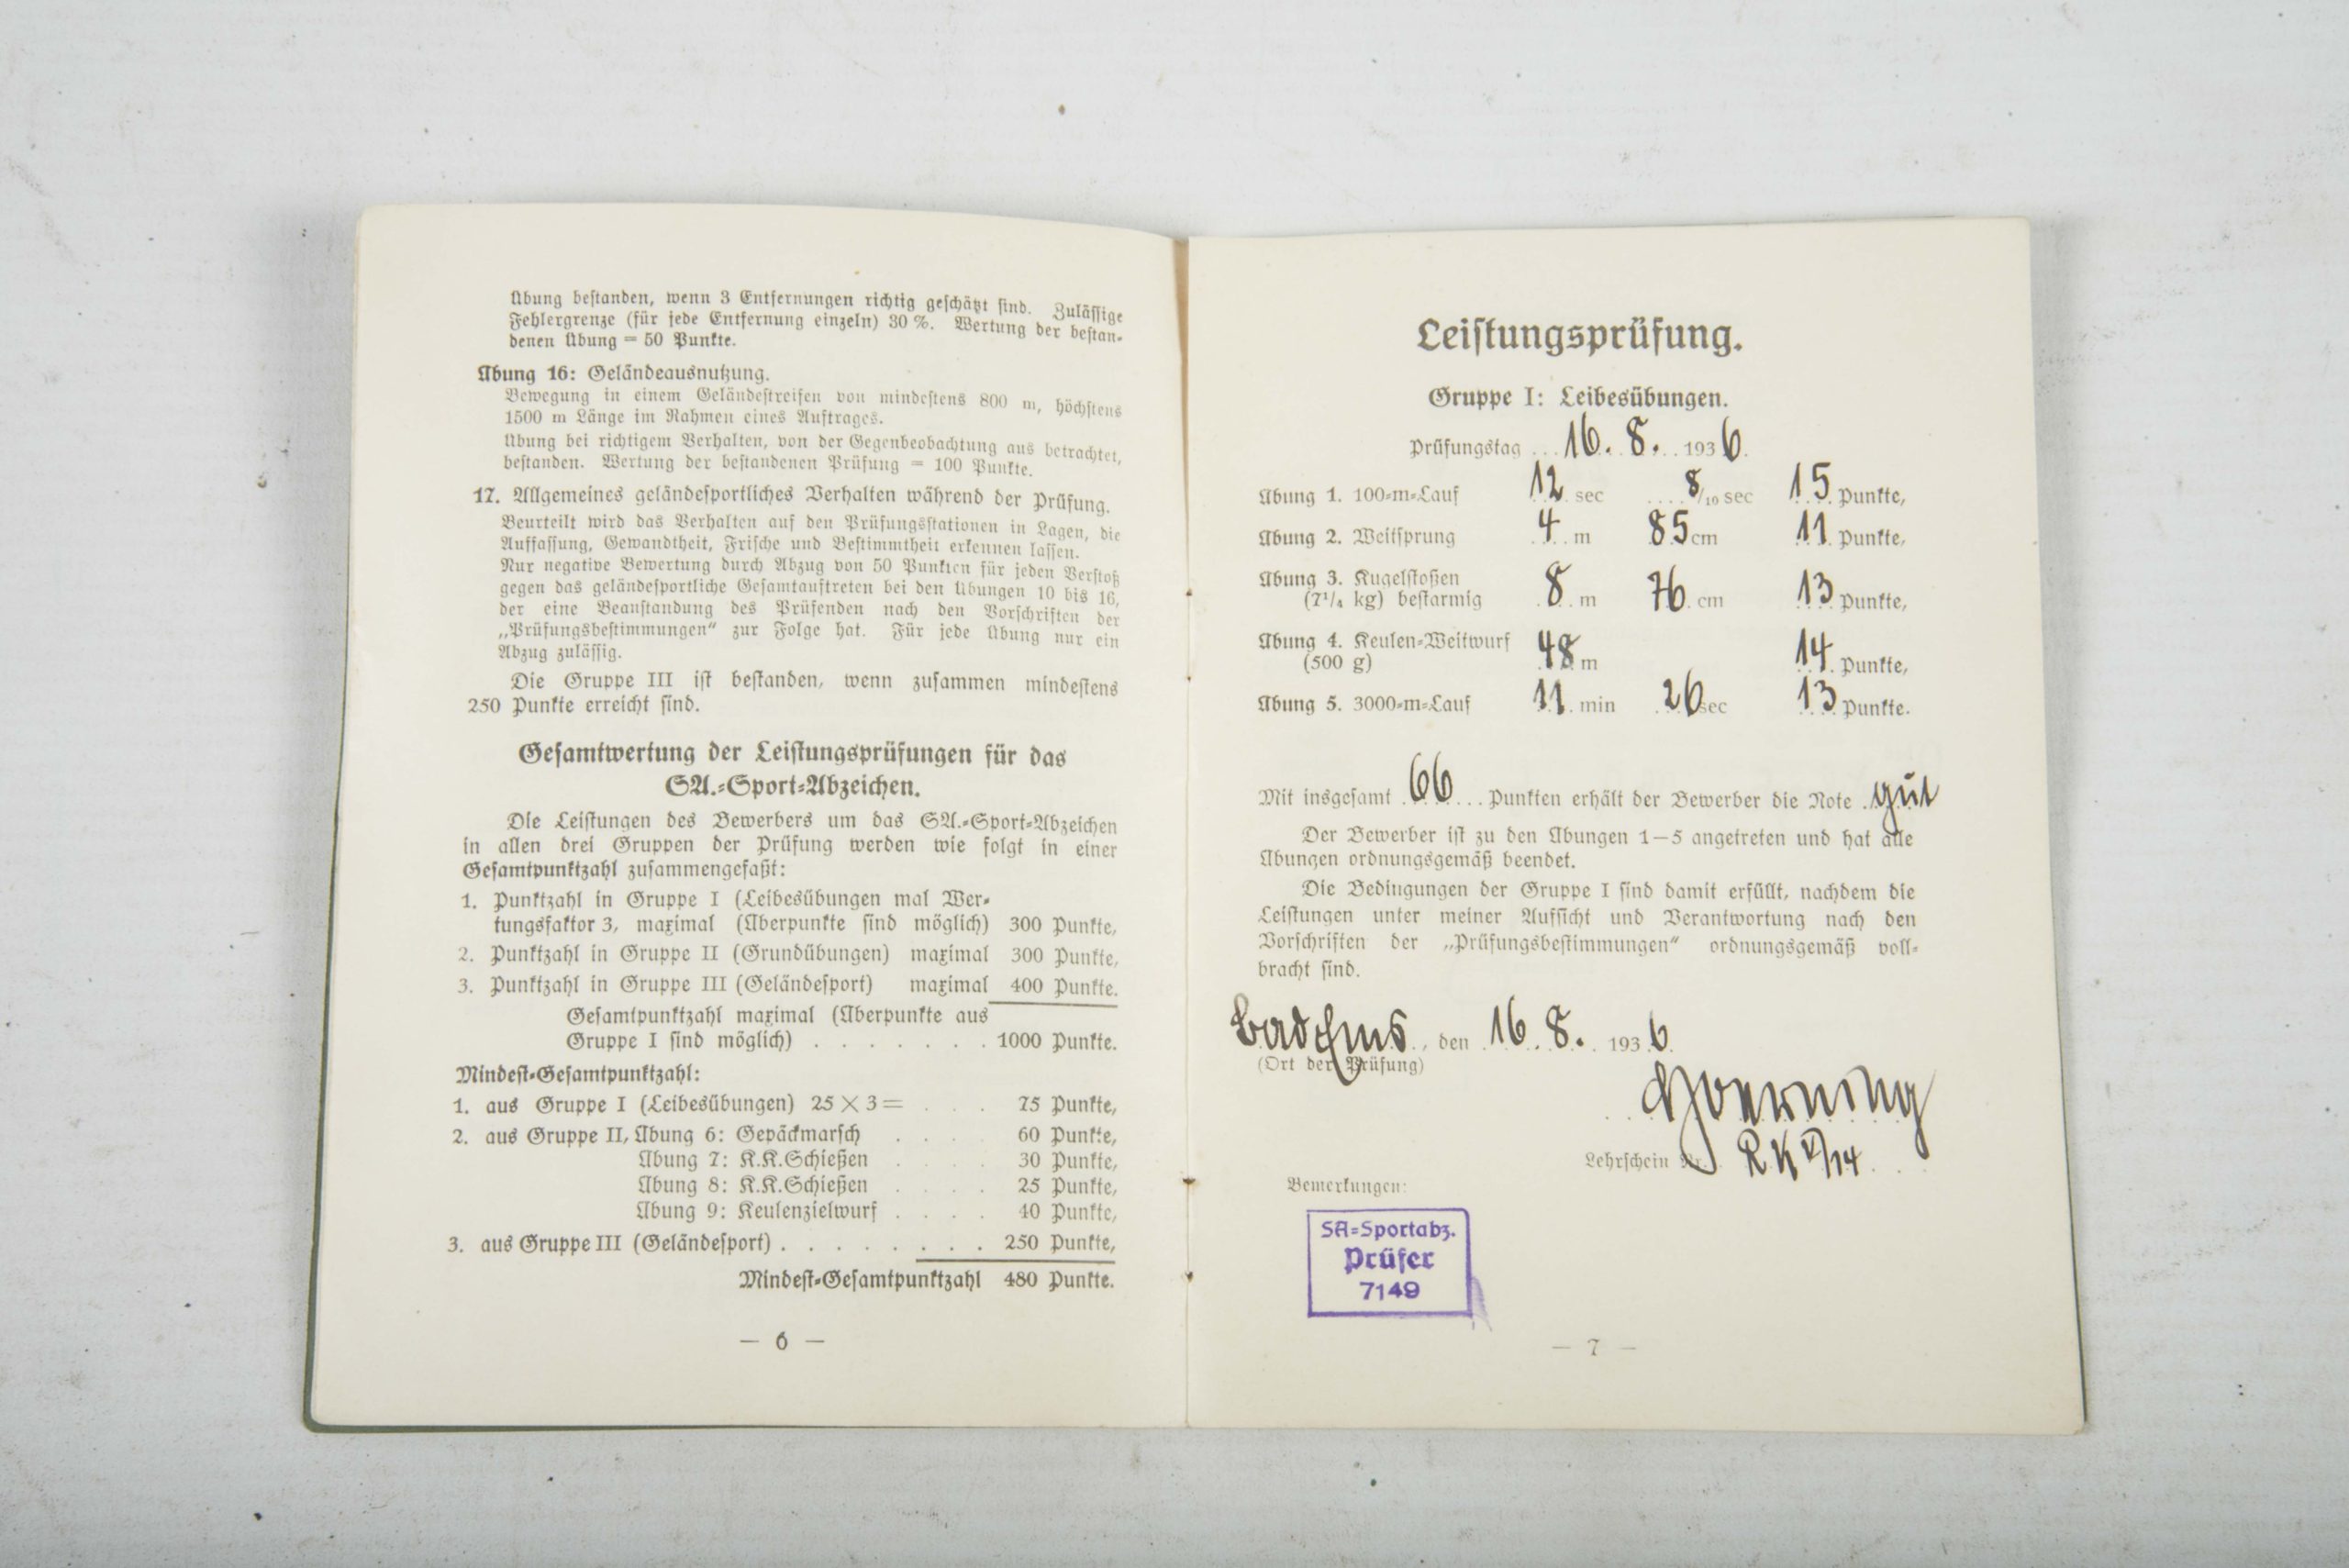 Übung bestanden, wenn 3 Entfernungen richtig geschätzt sind. Zulässige
Fehlergrenze (für jede Entfernung einzeln) 30 %. Wertung der bestan-
denen Übung = 50 Punkte.
Übung 16: Geländeausnutzung.
Bewegung in einem Geländestreifen von mindestens 800 m, höchstens
1500 m Länge im Rahmen eines Auftrages.
Übung bei richtigem Verhalten, von der Gegenbeobachtung aus betrachtet,
bestanden. Wertung der bestandenen Prüfung = 100 Punkte.
17. Allgemeines geländesportliches Verhalten während der Prüfung.
Beurteilt wird das Verhalten auf den Prüfungsstationen in Lagen, die
Auffassung, Gewandtheit, Frische und Bestimmtheit erkennen lassen.
Nur negative Bewertung durch Abzug von 50 Punkten für jeden Verstoß
gegen das geländesportliche Gesamtauftreten bei den Übungen 10 bis 16,
der eine Beanstandung des Prüfenden nach den Vorschriften der
„Prüfungsbestimmungen“ zur Folge hat. Für jede Übung nur ein
Abzug zulässig.
Die Gruppe III ist bestanden, wenn zusammen mindestens
250 Punkte erreicht sind.
Gesamtwertung der Leistungsprüfungen für das
SA.-Sport-Abzeichen.
Die Leistungen des Bewerbers um das SA.-Sport-Abzeichen
in allen drei Gruppen der Prüfung werden wie folgt in einer
Gesamtpunktzahl zusammengefaßt:
1. Punktzahl in Gruppe I (Leibesübungen mal Wer-
tungsfaktor 3, maximal (Überpunkte sind möglich) 300 Punkte,
2. Punktzahl in Gruppe II (Grundübungen) maximal 300 Punkte,
3. Punktzahl in Gruppe III (Geländesport) maximal 400 Punkte.
Gesamtpunktzahl maximal (Überpunkte aus
Gruppe I sind möglich) . . . . . . . 1000 Punkte.
Mindest-Gesamtpunktzahl:
1. aus Gruppe I (Leibesübungen) 25 × 3 = . . . 75 Punkte,
2. aus Gruppe II, Übung 6: Gepäckmarsch . . . . 60 Punkte,
Übung 7: K.K.Schießen . . . . 30 Punkte,
Übung 8: K.K.Schießen . . . . 25 Punkte,
Übung 9: Keulenzielwurf . . . . 40 Punkte,
3. aus Gruppe III (Geländesport) . . . . . . . . 250 Punkte,
Mindest-Gesamtpunktzahl 480 Punkte.
— 6 —
Leistungsprüfung.
Gruppe I: Leibesübungen.
Prüfungstag 16. 8. 1936.
Übung 1. 100-m-Lauf 12 sec 8/10 sec 15 Punkte,
Übung 2. Weitsprung 4 m 85 cm 11 Punkte,
Übung 3. Kugelstoßen
(7¼ kg) bestarmig 8 m 76 cm 13 Punkte,
Übung 4. Keulen-Weitwurf 48 m 14 Punkte,
(500 g)
Übung 5. 3000-m-Lauf 11 min 26 sec 13 Punkte.
Mit insgesamt 66 Punkten erhält der Bewerber die Note gut
Der Bewerber ist zu den Übungen 1—5 angetreten und hat alle
Übungen ordnungsgemäß beendet.
Die Bedingungen der Gruppe I sind damit erfüllt, nachdem die
Leistungen unter meiner Aufsicht und Verantwortung nach den
Vorschriften der „Prüfungsbestimmungen“ ordnungsgemäß voll-
bracht sind.
Bad Ems, den 16. 8. 1936
(Ort der Prüfung)
Hoerning
Lehrschein Nr. RK V/14
Bemerkungen:
SA-Sportabz.
Prüfer
7149
— 7 —